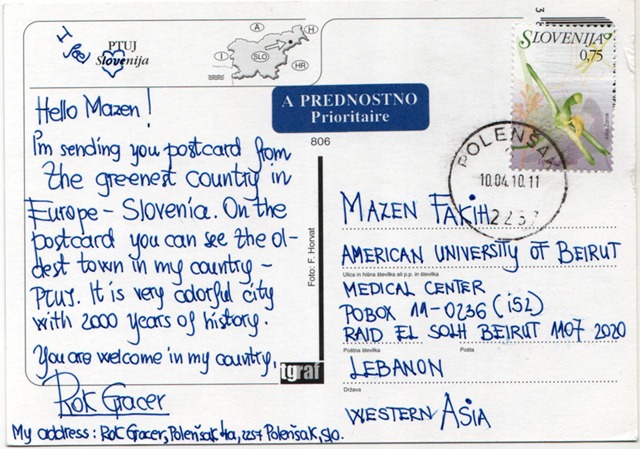 I feel
PTUJ
Slovenija
A
H
I
SLO
HR
Hello Mazen!
I'm sending you postcard from
the greenest country in
Europe - Slovenia. On the
postcard you can see the ol-
dest town in my country -
PTUJ. It is very colorful city
with 2000 years of history.
You are welcome in my country.
Rok Gracer
My address: Rok Gracer, Polenšak 4a, 2257 Polenšak, SLO.
A PREDNOSTNO
Prioritaire
806
Foto: F. Horvat
tgraf
SLOVENIJA
0,75
POLENŠAK
10.04.10.11
2257
MAZEN FAKIH
AMERICAN UNIVERSITY OF BEIRUT
Ulica in hišna številka ali p.p. in številka
MEDICAL CENTER
POBOX 11-0236 (i52)
RAID EL SOLH BEIRUT 1107 2020
Poštna številka Pošta
LEBANON
Država
WESTERN ASIA